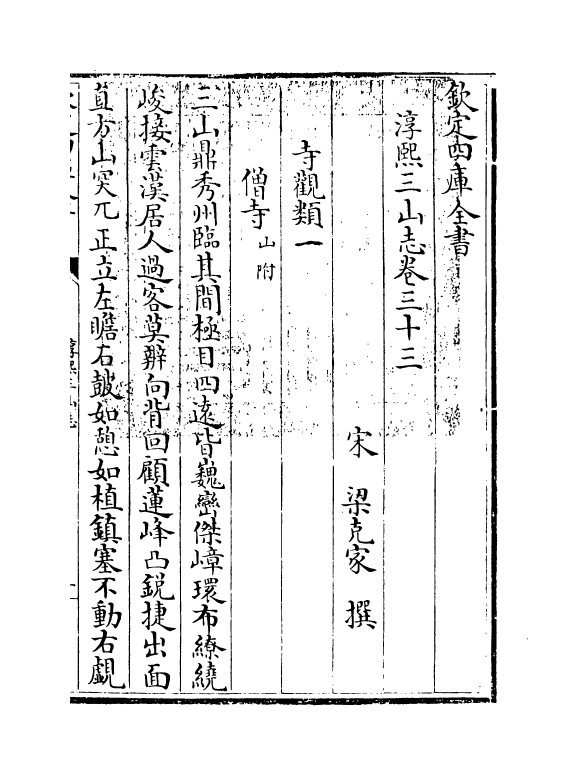 欽定四庫全書
淳熙三山志卷三十三
宋 梁克家 撰
寺觀類一
僧寺山附
三山鼎秀州臨其間極目四遠皆巍巒傑嶂環布繚繞
峻接雲漢居人過客莫辭向背回顧蓮峰凸銳捷出面
直方山突兀正立左瞻右皷如憩如植鎮塞不動右覷
淳熙三山志